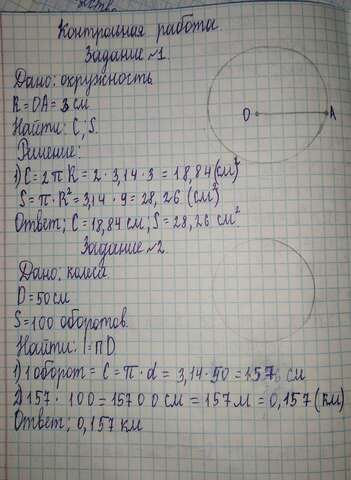 Контрольная работа.
Задание №1.
Дано: окружность
R = OA = 3 см
Найти: C; S.
Решение:
1) C = 2πR = 2 · 3,14 · 3 = 18,84 (см)
S = π · R² = 3,14 · 9 = 28,26 (см²)
Ответ; C = 18,84 см; S = 28,26 см²
O A
Задание №2
Дано: колеса
D = 50 см
S = 100 оборотов.
Найти: l = πD
1) 1 оборот = C = π · d = 3,14 · 50 = 157 см
2) 157 · 100 = 15700 см = 157 м = 0,157 (км)
Ответ; 0,157 км